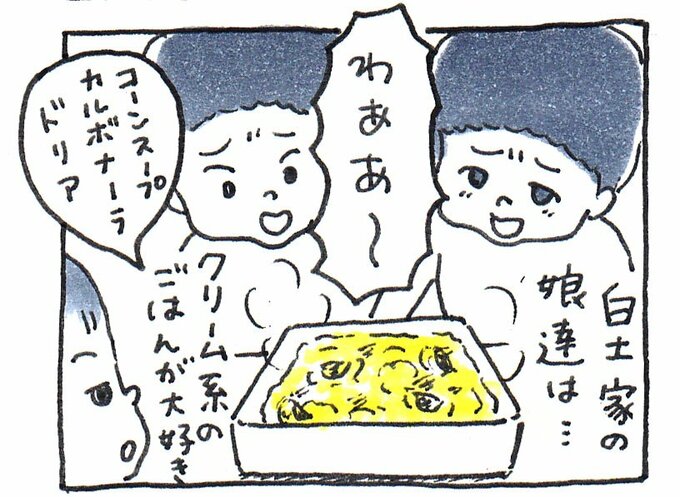 白土家の
娘達は…
わぁぁ〜
クリーム系の
ごはんが大好き
コーンスープ
カルボナーラ
ドリア